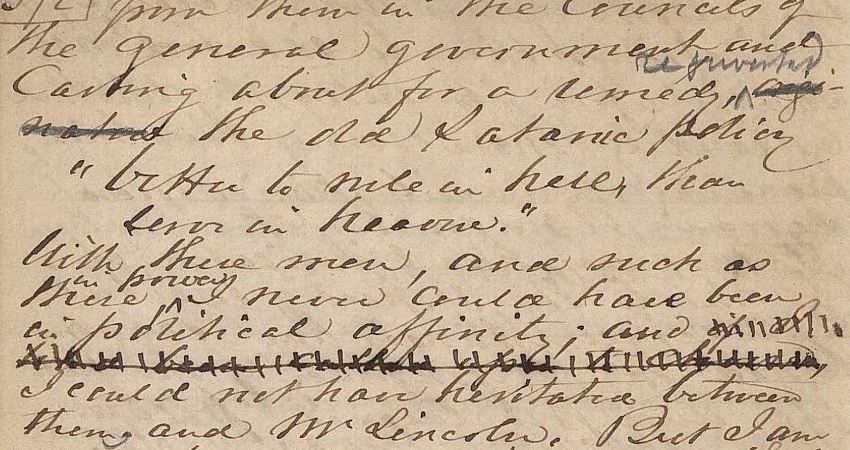 from them in the Councils of
the general government and
represented
Casting about for a remedy, ^ origi-
nated the old Satanic policy
"better to rule in hell, than
serve in heaven."
With these men, and such as
in power
these, ^ I never could have been
in political affinity; and
I could not have hesitated between
them and Mr Lincoln. But I am